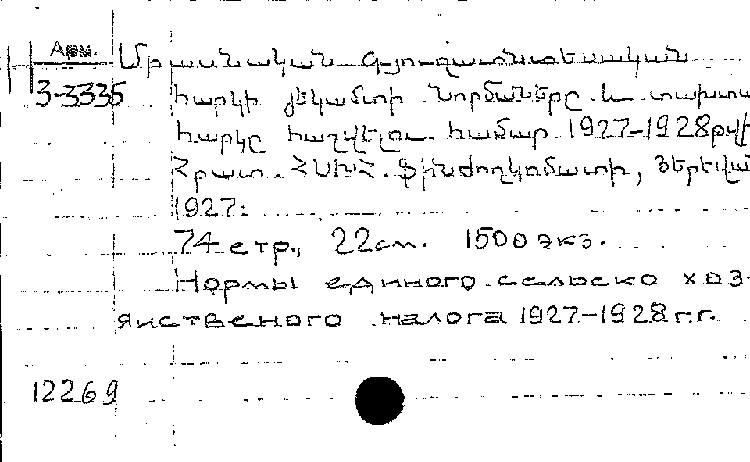 Арм. Միասնական Գյուղատնտեսական
3-3335 հարկի յեկամտի նորմաները և տախտա
հարկը հաշվելու համար 1927-1928թվի
Հրատ. ՀՍԽՀ. Ֆինժողկոմատի, Յերևան
1927:
74 стр., 22 см. 1500 экз.
Нормы единого сельско хоз-
яйственого налога 1927-1928 г.г.
12269